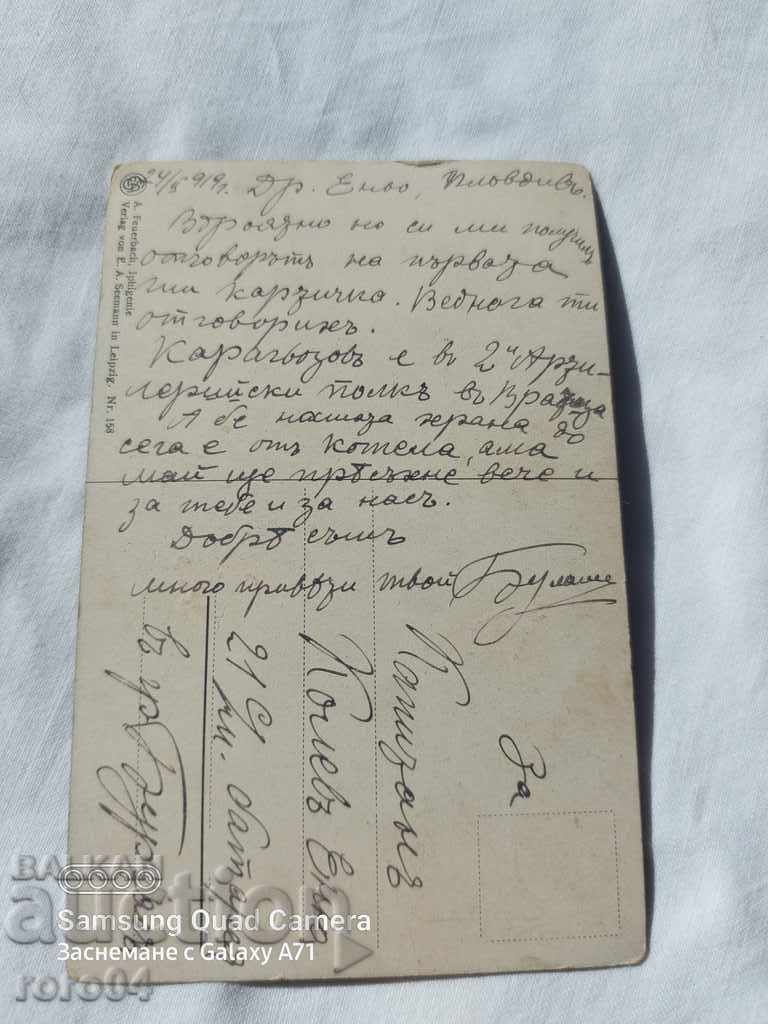 24/5 919г. Др. Еньо, Пловдивъ.
Вѣроятно но си ми получилъ
отговорътъ на първата
ти картичка. Веднога ти
отговорихъ.
Карагьозовъ е въ 2и Арти-
лерийски полкъ въ Вратца
А бе нашта храна до
сега е отъ котела, ама
май ще прѣсъхне вече и
за тебе и за насъ.
Добрѣ съмъ
много привѣти твой
A. Feuerbach, Iphigenie
Verlag von E. A. Seemann in Leipzig. Nr. 158
За
Капитанъ
Колевъ Еньо
21
въ гр.
БАЛКАН
auction
Samsung Quad Camera
Заснемане с Galaxy A71
roro04